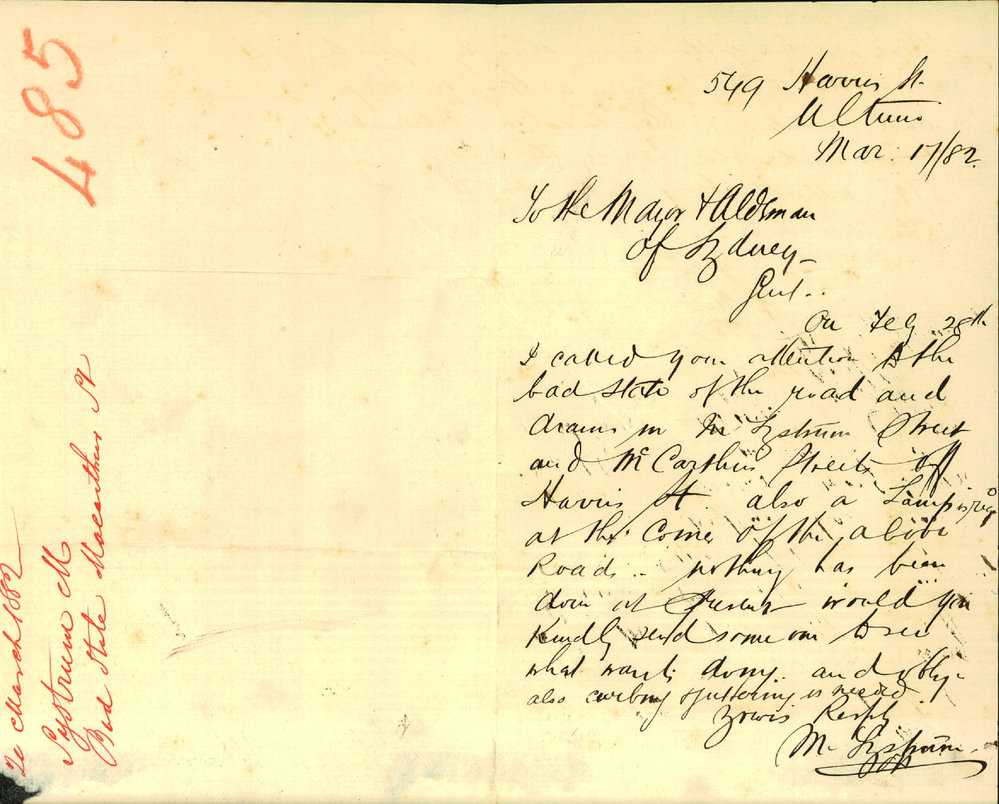 485
20 March 1882
Systrum M
Bad State Macarthur St
549 Harris St.
Ultimo
Mar. 17/82.
To the Mayor & Aldsman
of Sydney
Gent..
On Feby 28th
I called your attention to the
bad state of the road and
drains in Systrum Street
and McCarthur Streets off
Harris St. also a Lamp is req
at the Corner of the above
Roads.. nothing has been
don at present would you
Kindly send some one to see
what wants doing. and oblige
also curbing & guttering is needed
Yours Respfy
M. Systrum